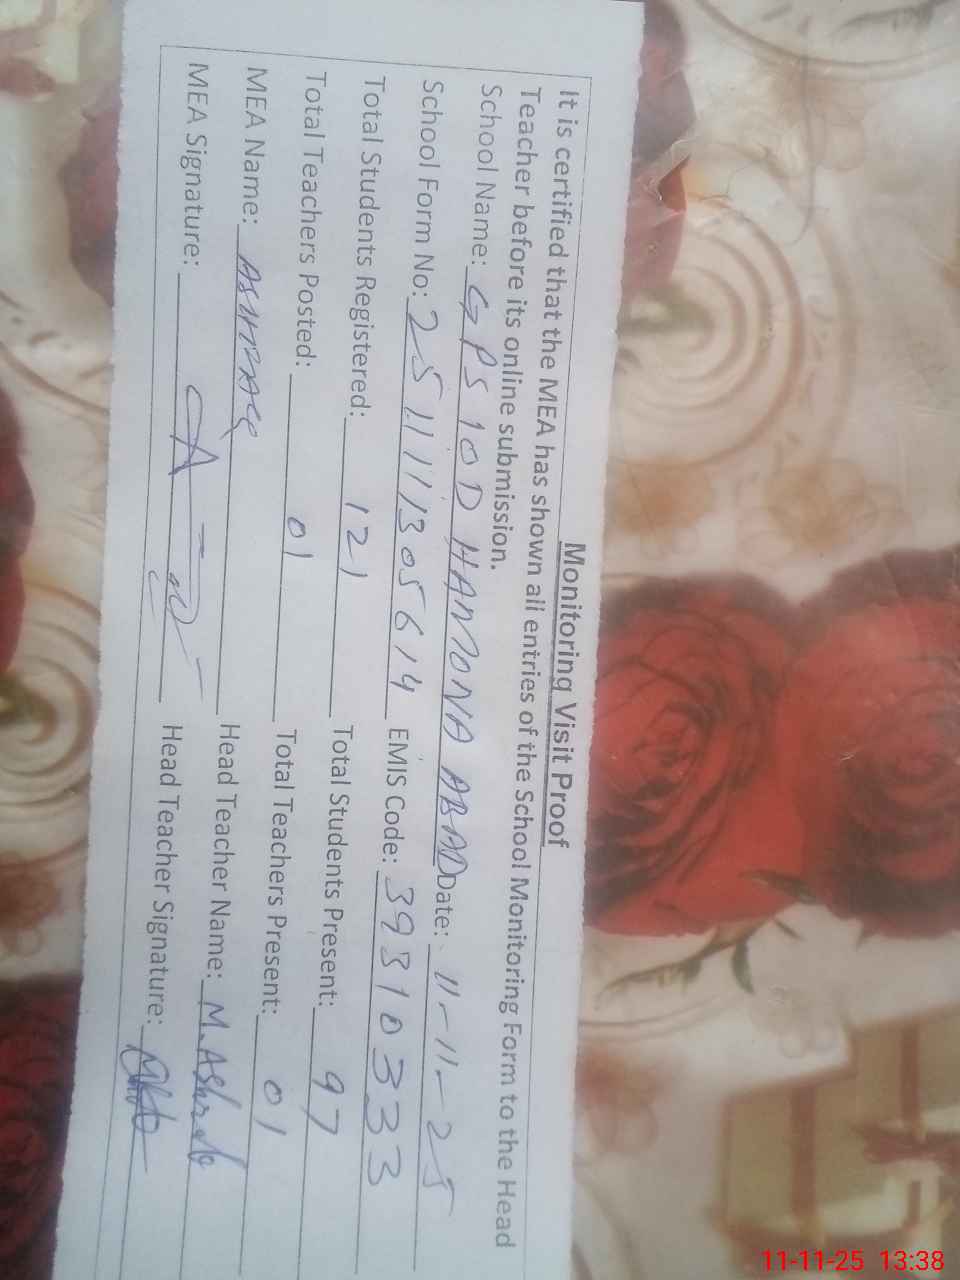 Monitoring Visit Proof
It is certified that the MEA has shown all entries of the School Monitoring Form to the Head
Teacher before its online submission.
School Name: GPS 10D HAMONA ABAD Date: 11-11-25
School Form No: 251111305614 EMIS Code: 39310333
Total Students Registered: 121 Total Students Present: 97
Total Teachers Posted: 01 Total Teachers Present: 01
MEA Name: Head Teacher Name: M. Ashrab
MEA Signature: Head Teacher Signature:
11-11-25 13:38